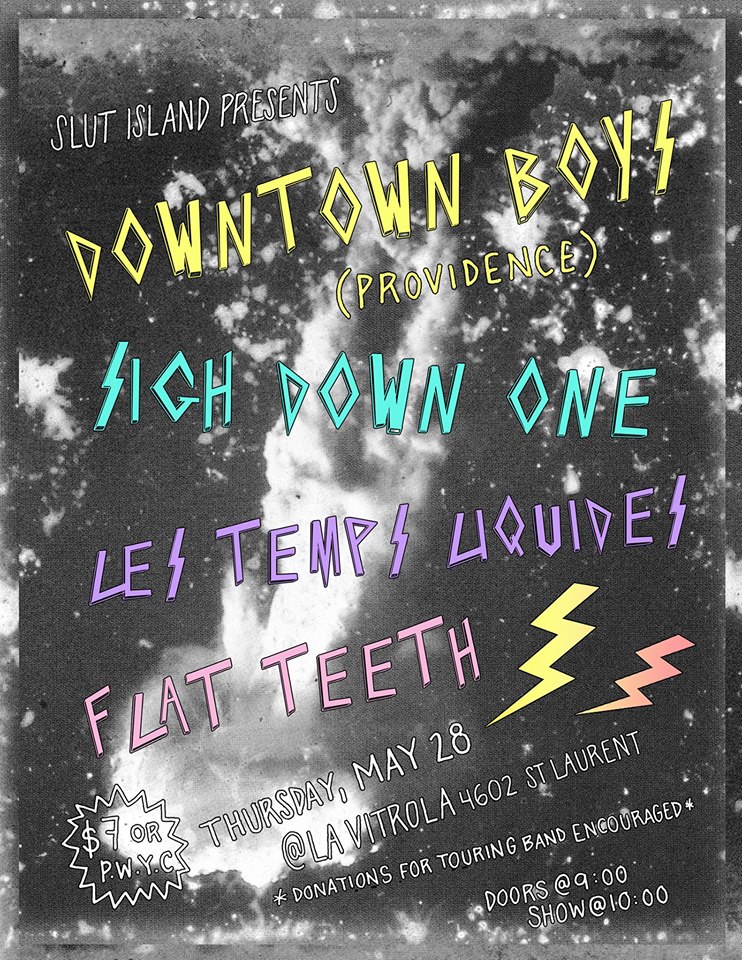 SLUT ISLAND PRESENTS
DOWNTOWN BOYS
(PROVIDENCE)
SIGH DOWN ONE
LES TEMPS LIQUIDES
FLAT TEETH
THURSDAY, MAY 28
@LA VITROLA 4602 ST LAURENT
*DONATIONS FOR TOURING BAND ENCOURAGED*
$7 OR
P.W.Y.C
DOORS @ 9:00
SHOW @ 10:00